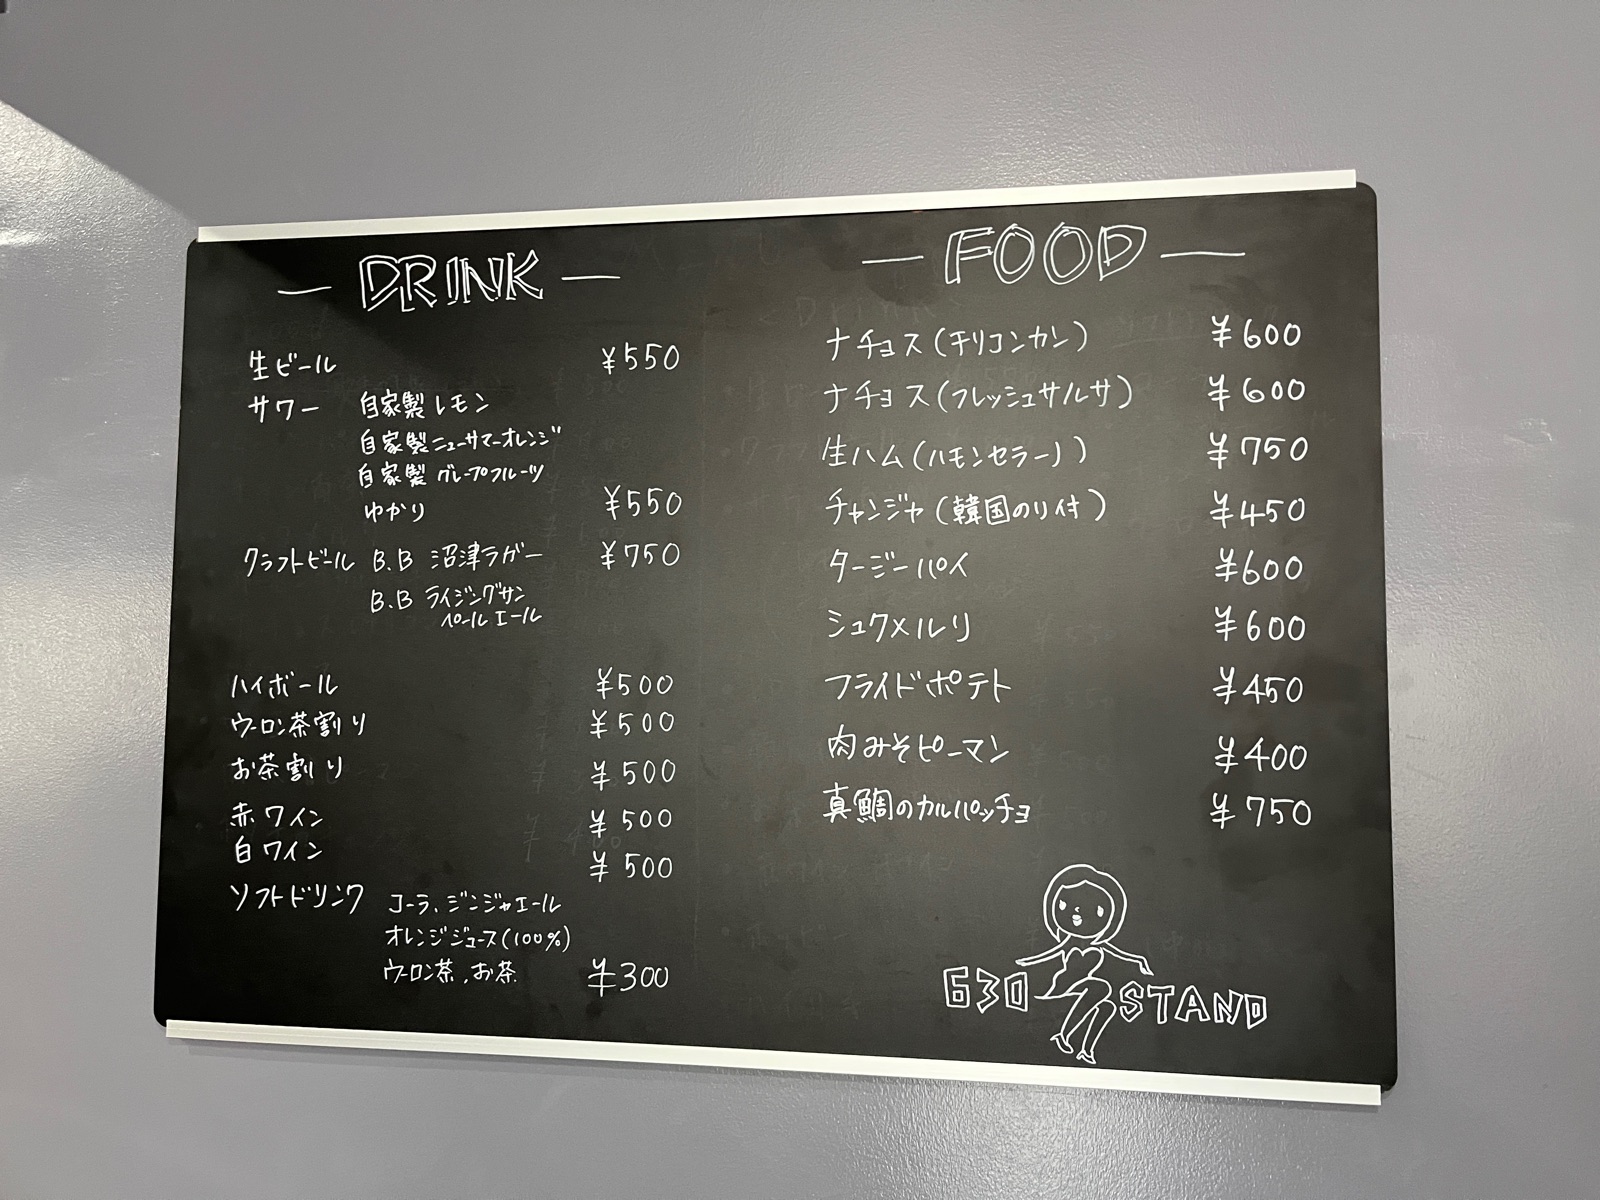 DRINK
生ビール ¥550
サワー 自家製レモン
自家製ニューサマーオレンジ
自家製グレープフルーツ
ゆかり ¥550
クラフトビール B.B 沼津ラガー ¥750
B.B ライジングサン
ペールエール
ハイボール ¥500
ウーロン茶割り ¥500
お茶割り ¥500
赤ワイン ¥500
白ワイン ¥500
ソフトドリンク コーラ、ジンジャエール
オレンジジュース(100%)
ウーロン茶、お茶 ¥300
FOOD
ナチョス(チリコンカン) ¥600
ナチョス(フレッシュサルサ) ¥600
生ハム(ハモンセラーノ) ¥750
チャンジャ(韓国のり付) ¥450
タージーパイ ¥600
シュクメルリ ¥600
フライドポテト ¥450
肉みそピーマン ¥400
真鯛のカルパッチョ ¥750
630 STAND